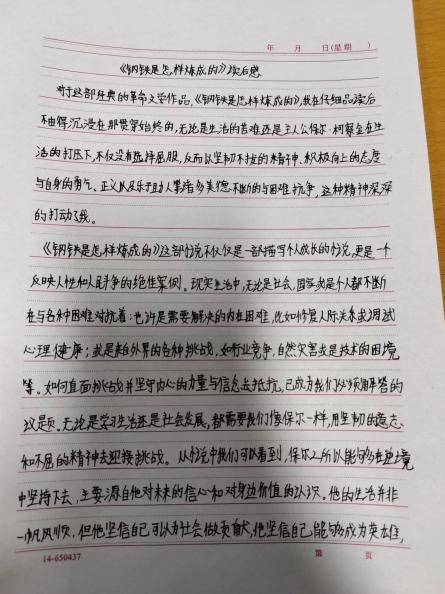 年 月 日(星期 )
《钢铁是怎样炼成的》读后感
对于这部经典的革命文学作品,《钢铁是怎样炼成的》,我在仔细品读后
不由得沉浸在那贯穿始终的,无论是生活的苦难还是主人公保尔·柯察金在生
活的打压下,不仅没有选择屈服,反而以坚韧不拔的精神、积极向上的态度
与自身的勇气、正义以及乐于助人等诸多美德不断的与困难抗争,这种精神深深
的打动了我。
《钢铁是怎样炼成的》这部小说不仅仅是一部描写个人成长的小说,更是一个
反映人性和人民斗争的绝佳案例。现实生活中,无论是社会,国家或是个人都不断
在与各种困难对抗着:也许是需要解决的内在困难,比如修复人际关系或调试
心理健康;或是来自外界的各种挑战,如行业竞争,自然灾害或是技术的困境
等。如何直面挑战并坚守内心的力量与信念去抵抗,已成为我们必须解答的
议题。无论是学习生活还是社会发展,都需要我们像保尔一样,用坚韧的意志
和不屈的精神去迎接挑战。从小说中我们可以看到,保尔之所以能够在逆境
中坚持下去,主要源自他对未来的信心和对身边价值的认识。他的生活并非
一帆风顺,但他坚信自己可以为社会做贡献,他坚信自己能够成为英雄,
14-650437 第 页